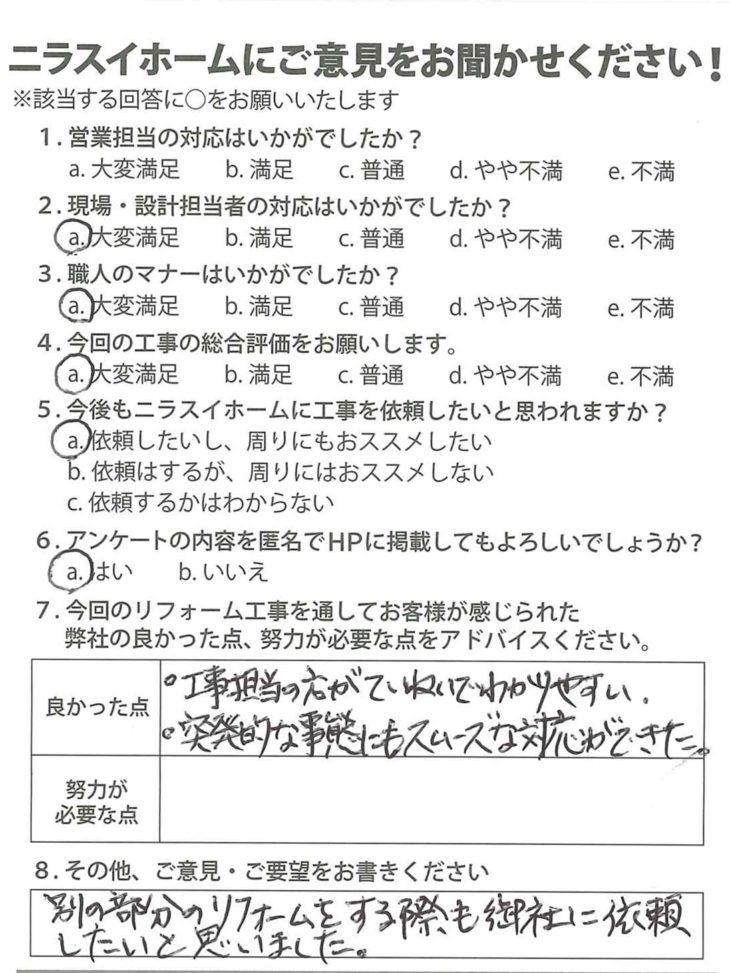 ニラスイホームにご意見をお聞かせください!
※該当する回答に○をお願いいたします
1. 営業担当の対応はいかがでしたか?
a. 大変満足 b. 満足 c. 普通 d. やや不満 e. 不満
2. 現場・設計担当者の対応はいかがでしたか?
a. 大変満足 b. 満足 c. 普通 d. やや不満 e. 不満
3. 職人のマナーはいかがでしたか?
a. 大変満足 b. 満足 c. 普通 d. やや不満 e. 不満
4. 今回の工事の総合評価をお願いします。
a. 大変満足 b. 満足 c. 普通 d. やや不満 e. 不満
5. 今後もニラスイホームに工事を依頼したいと思われますか?
a. 依頼したいし、周りにもおススメしたい
b. 依頼はするが、周りにはおススメしない
c. 依頼するかはわからない
6. アンケートの内容を匿名でHPに掲載してもよろしいでしょうか?
a. はい b. いいえ
7. 今回のリフォーム工事を通してお客様が感じられた
弊社の良かった点、努力が必要な点をアドバイスください。
良かった点
。工事担当の方がていねいでわかりやすい.
。突発的な事態にもスムーズな対応ができた。
努力が
必要な点
8. その他、ご意見・ご要望をお書きください
別の部分のリフォームをする際も御社に依頼
したいと思いました。